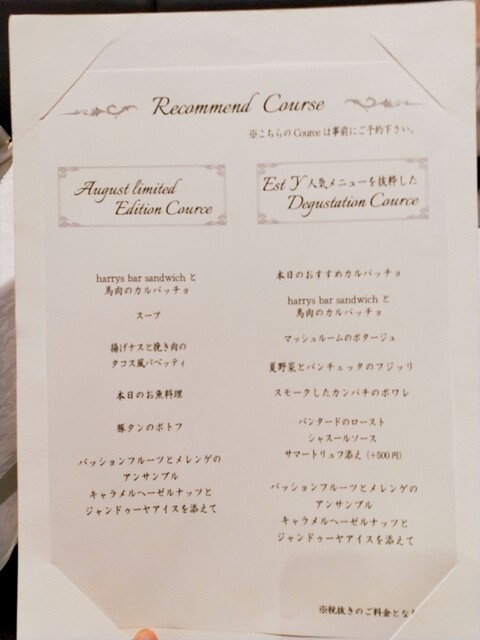 Recommend Course
※こちらの Cource は事前にご予約下さい。
August limited
Edition Cource
harrys bar sandwich と
馬肉のカルパッチョ
スープ
揚げナスと挽き肉の
タコス風パベッティ
本日のお魚料理
豚タンのポトフ
パッションフルーツとメレンゲの
アンサンブル
キャラメルヘーゼルナッツと
ジャンドゥーヤアイスを添えて
Est Y 人気メニューを抜粋した
Degustation Cource
本日のおすすめカルパッチョ
harrys bar sandwich と
馬肉のカルパッチョ
マッシュルームのポタージュ
夏野菜とパンチェッタのフジッリ
スモークしたカンパチのポワレ
パンタードのロースト
シャスールソース
サマートリュフ添え (+500円)
パッションフルーツとメレンゲの
アンサンブル
キャラメルヘーゼルナッツと
ジャンドゥーヤアイスを添えて
※税抜きのご料金とな